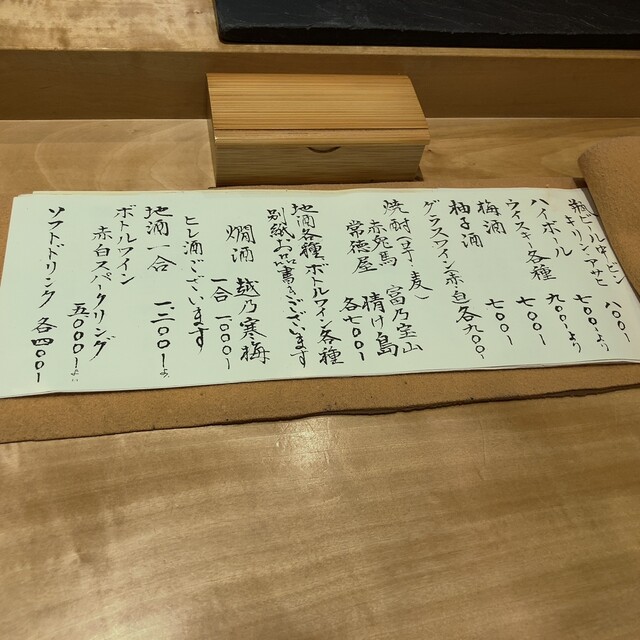 瓶ビール中ビン
キリン・アサヒ 八〇〇〜
ハイボール 七〇〇〜より
ウイスキー各種 九〇〇〜より
梅酒 七〇〇〜
柚子酒 七〇〇〜
グラスワイン赤白各九〇〇〜
焼酎(芋、麦)富乃宝山
赤兎馬 情け島
常徳屋 各七〇〇〜
地酒各種、ボトルワイン各種
別紙お品書きございます
燗酒 越乃寒梅
一合 一〇〇〇〜
ヒレ酒ございます
地酒一合 一二〇〇〜より
ボトルワイン
赤白スパークリング
五〇〇〇〜より
ソフトドリンク 各四〇〇〜